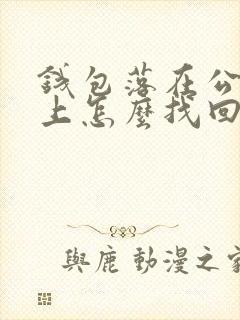 錢包落在公
上怎麼找回
與鹿動漫之家